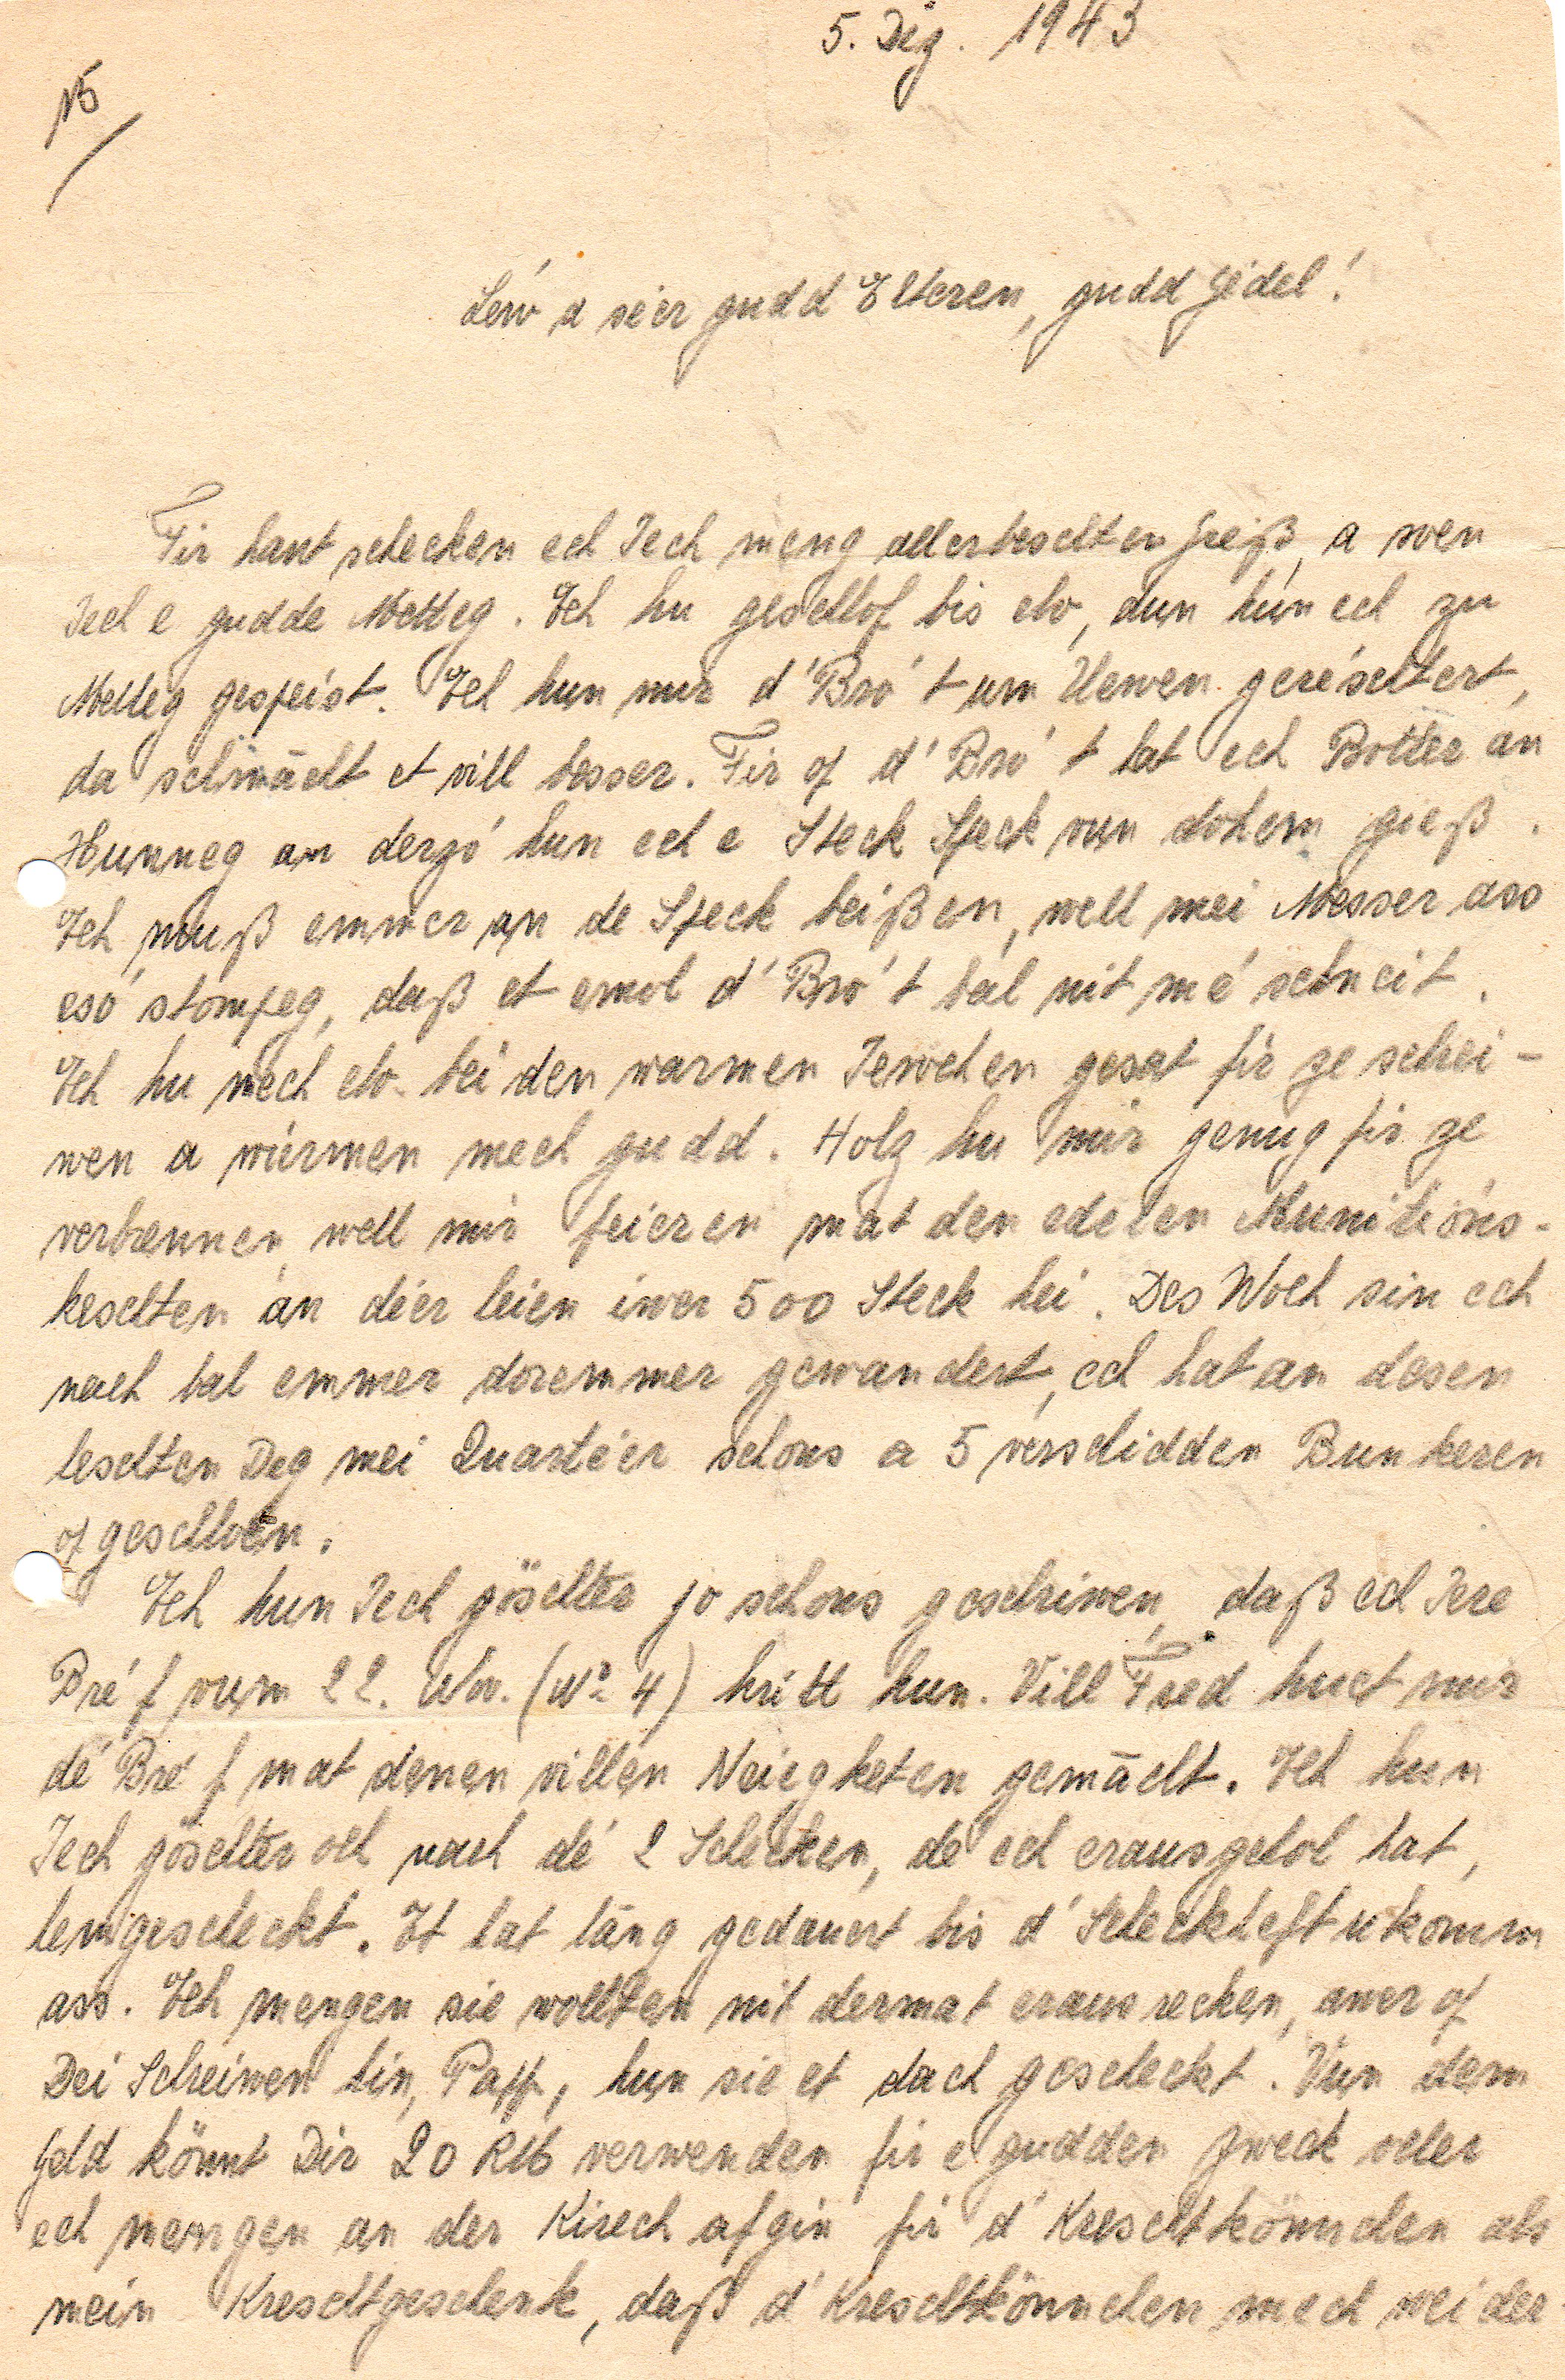 5. Dez. 1943
15
Léiw a séier gudd Elteren, gudd Jédel!
Fir haut schecken ech Iech meng allerbeschten Greiß, a wen
Iech e gudde Metteg. Ech hu geschlof bis elo, dun hun ech zu
Metteg gespeist. Ech hun mir d'Bró't um Uewen geréschtert,
da schmācht et vill besser. Fir of d'Bró't hat ech Botter an
Hunneg an derzó hun ech e Steck Speck vun dohem gieß.
Ech muß emmer an de Speck beißen, well mei Messer ass
esó stompeg, daß et emol d'Bró't bal nit mé schneit.
Ech hu mech elo bei den warmen Iewchen gesat fir ze schrei-
wen a wiermen mech gudd. Holz hu mir genug fir ze
verbrennen, well mir feieren mat den edelen Munitións-
keschten an déer leien iwer 500 Steck hei. Des Woch sin ech
nach bal emmer doremmer gewandert, ech hat an desen
leschten Deg mei Quartéer schons a 5 verschidden Bunkeren
ofgeschloen.
Ech hun Iech göschter jo schons geschriwen, daß ech Iere
Bréf vum 22. Nov. (No 4) kritt hun. Vill Fred huet mir
dé Bréf mat denen villen Neiegketen gemācht. Ech hun
Iech göschter och nach dé 2 Schecken, dé ech erausgehol hat,
hemgescheckt. Et hat läng gedauert bis d'Scheckheft ukomm
ass. Ech mengen sie wollten nit dermat erausrecken, awer of
Dei Schreiwen hin, Papp, hun sie et dach gescheckt. Vun dem
Geld könnt Dir 20 RM verwenden fir e gudden Zweck oder
ech mengen an der Kirech ofgin fir d'Kreschtkönnchen als
mein Kreschtgeschenk, daß d'Kreschtkönnchen mech weider